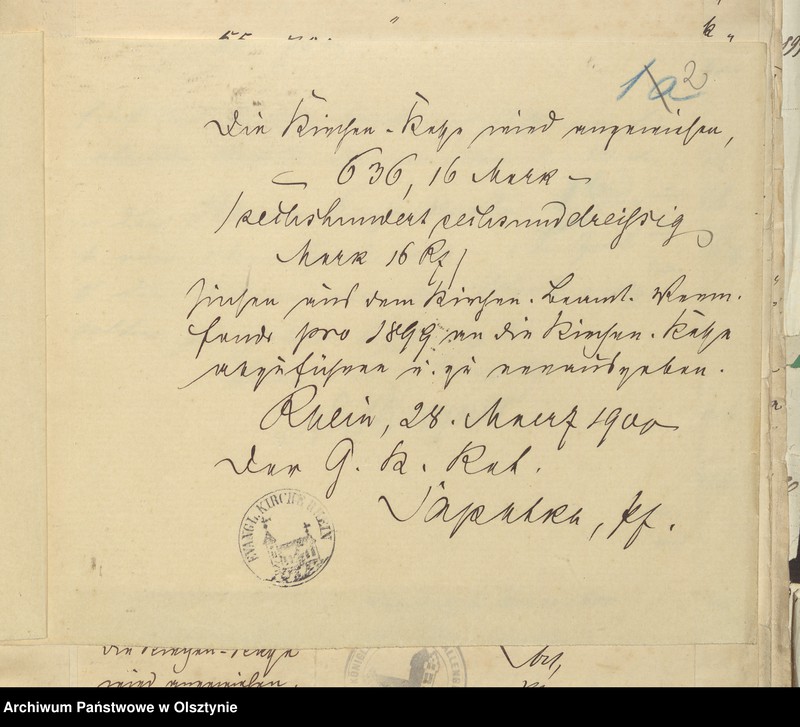 1a 2
Die Kirchen-Kasse wird angewiesen,
636, 16 Mark
/sechshundert sechsunddreissig
Mark 16 Pf/
Zinsen aus dem Kirchen-Beamt.
fonds pro 1899 an die Kirchen-Kasse
abzuführen u. zu verausgaben.
Rhein, 28. Maerz 1900
Der G. K. Rat.
Pf.
EVANGL. KIRCHE RHEIN
Die Kirchen-Kasse
wird angewiesen,
Archiwum Państwowe w Olsztynie